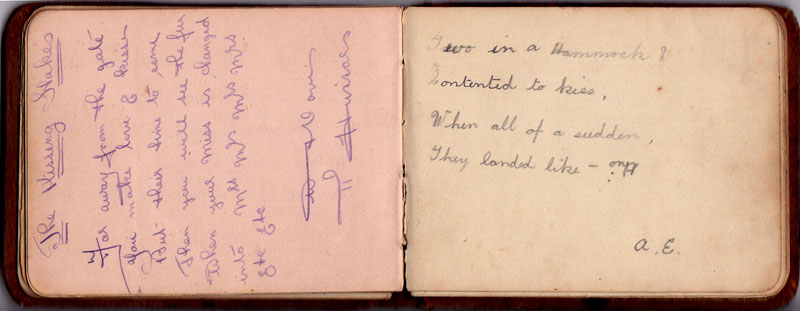 The Kissing Stakes
Far away from the gate
You make love & kiss
But their time to come
Then you will see the fun
When your Miss is changed
into Mrs Mrs Mrs Mrs
etc etc
Two in a Hammock &
Contented to kiss,
When all of a sudden,
They landed like - this
A. E.